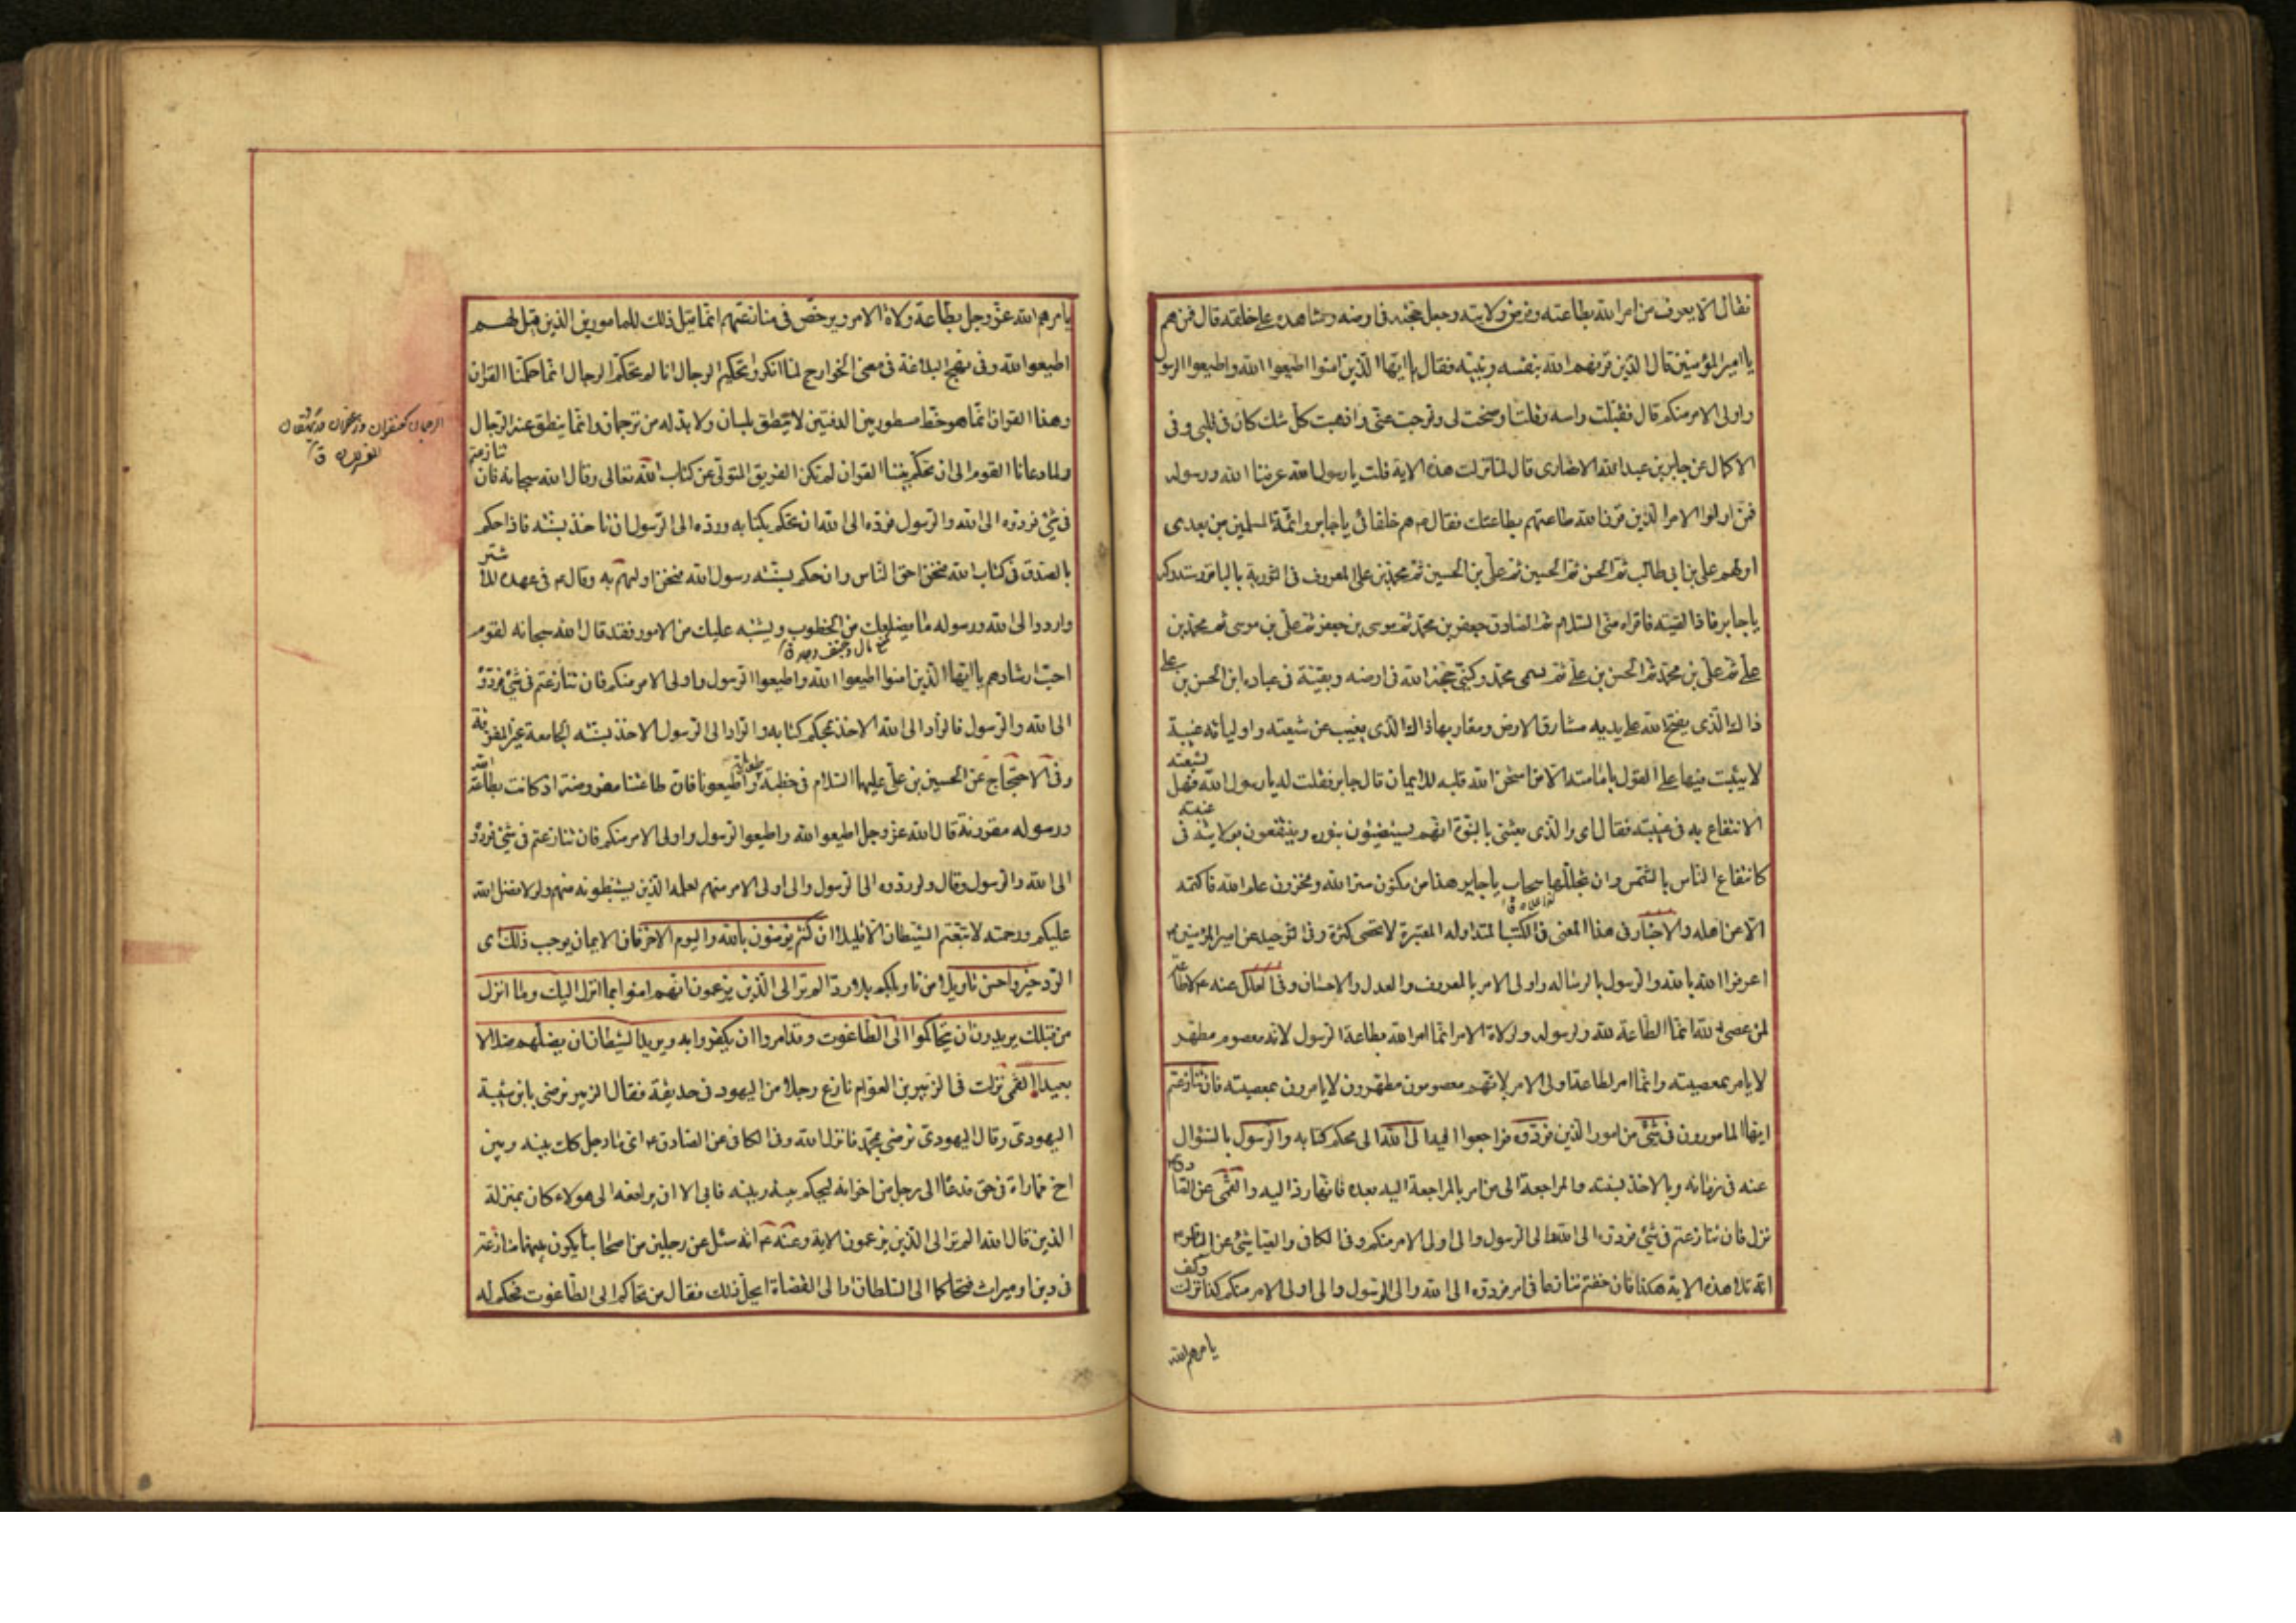 فقال لا يعرف من امر الله بطاعته وفرض ولايته وجعل حجته فى ارضه وشاهده على خلقه قال فمن هم
يا امير المؤمنين قال الذين قرنهم الله بنفسه ونبيه فقال يا ايها الذين امنوا اطيعوا الله واطيعوا الرسول
واولى الامر منكم قال فقبلت راسه وقلت اوضحت لى وفرجت عنى واذهبت كل شك كان فى قلبى وفى
الاكمال عن جابر بن عبد الله الانصارى قال لما نزلت هذه الاية قلت يا رسول الله عرفنا الله ورسوله
فمن اولوا الامر الذين قرن الله طاعتهم بطاعتك فقال هم خلفائى يا جابر وائمة المسلمين من بعدى
اولهم على بن ابى طالب ثم الحسن ثم الحسين ثم على بن الحسين ثم محمد بن على المعروف فى التورية بالباقر ستدركه
يا جابر فاذا لقيته فاقراه منى السلام ثم الصادق جعفر بن محمد ثم موسى بن جعفر ثم على بن موسى ثم محمد بن
على ثم على بن محمد ثم الحسن بن على ثم سمى محمد وكنيتى حجة الله فى ارضه وبقيته فى عباده ابن الحسن بن على
ذاك الذى يفتح الله على يديه مشارق الارض ومغاربها ذاك الذى يغيب عن شيعته واوليائه غيبة
لا يثبت فيها على القول بامامته الا من امتحن الله قلبه للايمان قال جابر فقلت له يا رسول الله فهل لشيعته
الانتفاع به فى غيبته فقال اى والذى بعثنى بالنبوة انهم يستضيئون بنوره وينتفعون بولايته فى غيبته
كانتفاع الناس بالشمس وان تجللها سحاب يا جابر هذا من مكنون سر الله ومخزون علم الله فاكتمه
الا عن اهله والاخبار فى هذا المعنى فى الكتب المتداوله المعتبرة لا تحصى كثرة وفى التوحيد عن امير المؤمنين ع
اعرفوا الله بالله والرسول بالرسالة واولى الامر بالمعروف والعدل والاحسان وفى العلل عنه ع لا طاعة
لمن عصى الله انما الطاعة لله ولرسوله ولولاة الامر انما امر الله بطاعة الرسول لانه معصوم مطهر
لا يامر بمعصيته وانما امر بطاعة اولى الامر لانهم معصومون مطهرون لا يامرون بمعصيته فان تنازعتم
ايها المامورون فى شئ من امور الدين فردوه فراجعوا فيه الى الله الى محكم كتابه والرسول بالسؤال
عنه فى زمانه وبالاخذ بسنته والمراجعة الى من امر بالمراجعة اليه بعده فانها رد اليه والقمى عن الصادق ع
نزل فان تنازعتم فى شئ فردوه الى الله والى الرسول والى اولى الامر منكم وفى الكافى والعياشى عن الباقر ع
انه تلا هذه الاية هكذا فان خفتم تنازعا فى امر فردوه الى الله والى الرسول والى اولى الامر منكم كذا نزلت وكيف
يامرهم الله
يامرهم الله عز وجل بطاعة ولاة الامر ويرخص فى منازعتهم انما قيل ذلك للمامورين الذين قيل لهم
اطيعوا الله وفى نهج البلاغة فى معنى الخوارج لما انكروا تحكيم الرجال انا لم نحكم الرجال انما حكمنا القران
وهذا القران انما هو خط مسطور بين الدفتين لا ينطق بلسان ولا بد له من ترجمان وانما ينطق عنه الرجال
ولما دعانا القوم الى ان نحكم بيننا القران لم نكن الفريق المتولى عن كتاب الله تعالى وقال الله سبحانه فان تنازعتم
فى شئ فردوه الى الله والرسول فرده الى الله ان نحكم بكتابه ورده الى الرسول ان ناخذ بسنته فاذا حكم
بالصدق فى كتاب الله فنحن احق الناس وان حكم بسنة رسول الله فنحن اولهم به وقال ع فى عهده للاشتر
واردد الى الله ورسوله ما يضلعك من الخطوب ويشتبه عليك من الامور فقد قال الله سبحانه لقوم
احب ارشادهم يا ايها الذين امنوا اطيعوا الله واطيعوا الرسول واولى الامر منكم فان تنازعتم فى شئ فردوه
الى الله والرسول فالراد الى الله الاخذ بمحكم كتابه والراد الى الرسول الاخذ بسنته الجامعة غير المفرقة
وفى الاحتجاج عن الحسين بن على عليهما السلام فى خطبته واطيعونا فان طاعتنا مفروضة اذ كانت بطاعة الله
ورسوله مقرونة قال الله عز وجل اطيعوا الله واطيعوا الرسول واولى الامر منكم فان تنازعتم فى شئ فردوه
الى الله والرسول وقال ولو ردوه الى الرسول والى اولى الامر منهم لعلمه الذين يستنبطونه منهم ولولا فضل الله
عليكم ورحمته لاتبعتم الشيطان الا قليلا ان كنتم تؤمنون بالله واليوم الاخر فان الايمان يوجب ذلك اى
الرد خير واحسن تاويلا من تاويلكم بلا رد الم تر الى الذين يزعمون انهم امنوا بما انزل اليك وما انزل
من قبلك يريدون ان يتحاكموا الى الطاغوت وقد امروا ان يكفروا به ويريد الشيطان ان يضلهم ضلالا
بعيدا القمى نزلت فى الزبير بن العوام نازع رجلا من اليهود فى حديقة فقال الزبير نرضى بابن شيبة
اليهودى وقال اليهودى نرضى بمحمد فانزل الله وفى الكافى عن الصادق ع ايما رجل كان بينه وبين
اخ مماراة فى حق فدعا الى رجل من اخوانه ليحكم بينه وبينه فابى الا ان يرافعه الى هولاء كان بمنزلة
الذين قال الله الم تر الى الذين يزعمون الاية وعنه ع انه سئل عن رجلين من اصحابنا يكون بينهما منازعة
فى دين او ميراث فتحاكما الى السلطان او الى القضاة ايحل ذلك فقال من تحاكم الى الطاغوت فحكم له